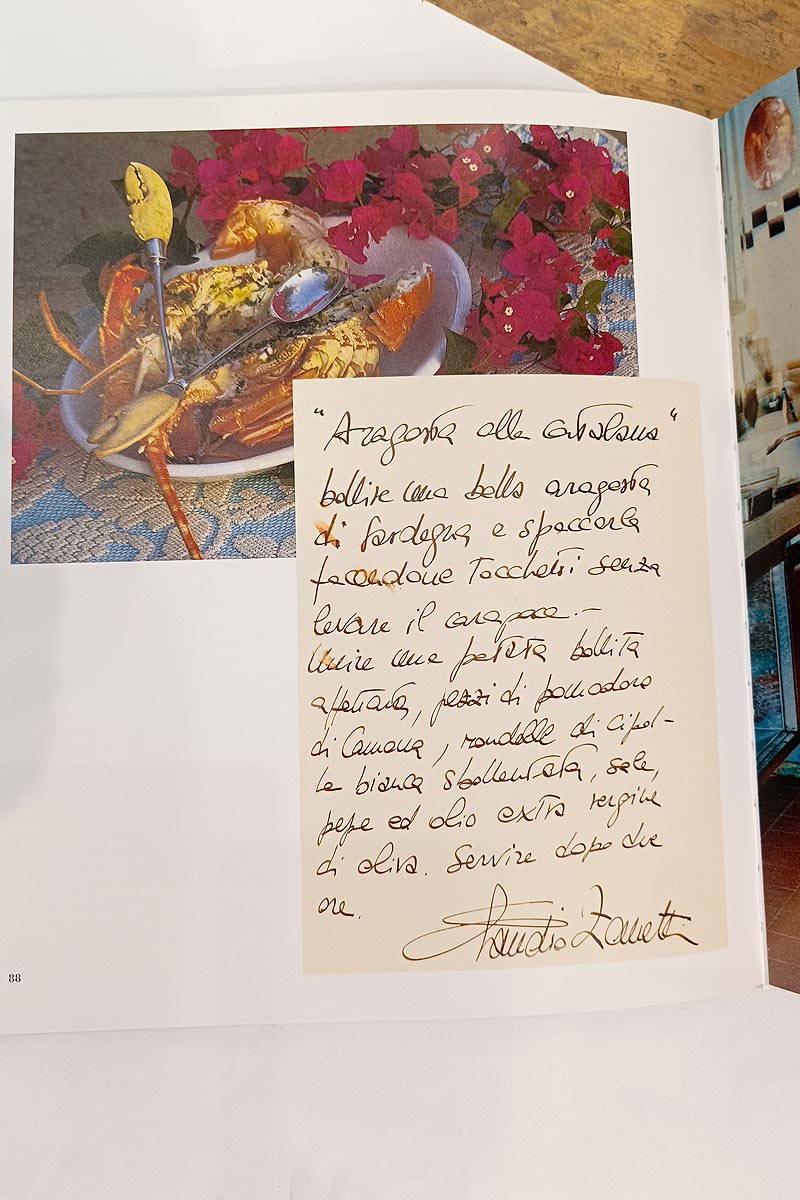 "Aragosta alla catalana"
bollire una bella aragosta
di Sardegna e spaccarla
facendone Tocchetti senza
levare il carapace.-
Unire una patata bollita
affettata, pezzi di pomodoro
di Camona, rondelle di cipol-
la bianca sbollentata, sale,
pepe ed olio extra vergine
di oliva. Servire dopo due
ore.
Claudio Zanetti
88